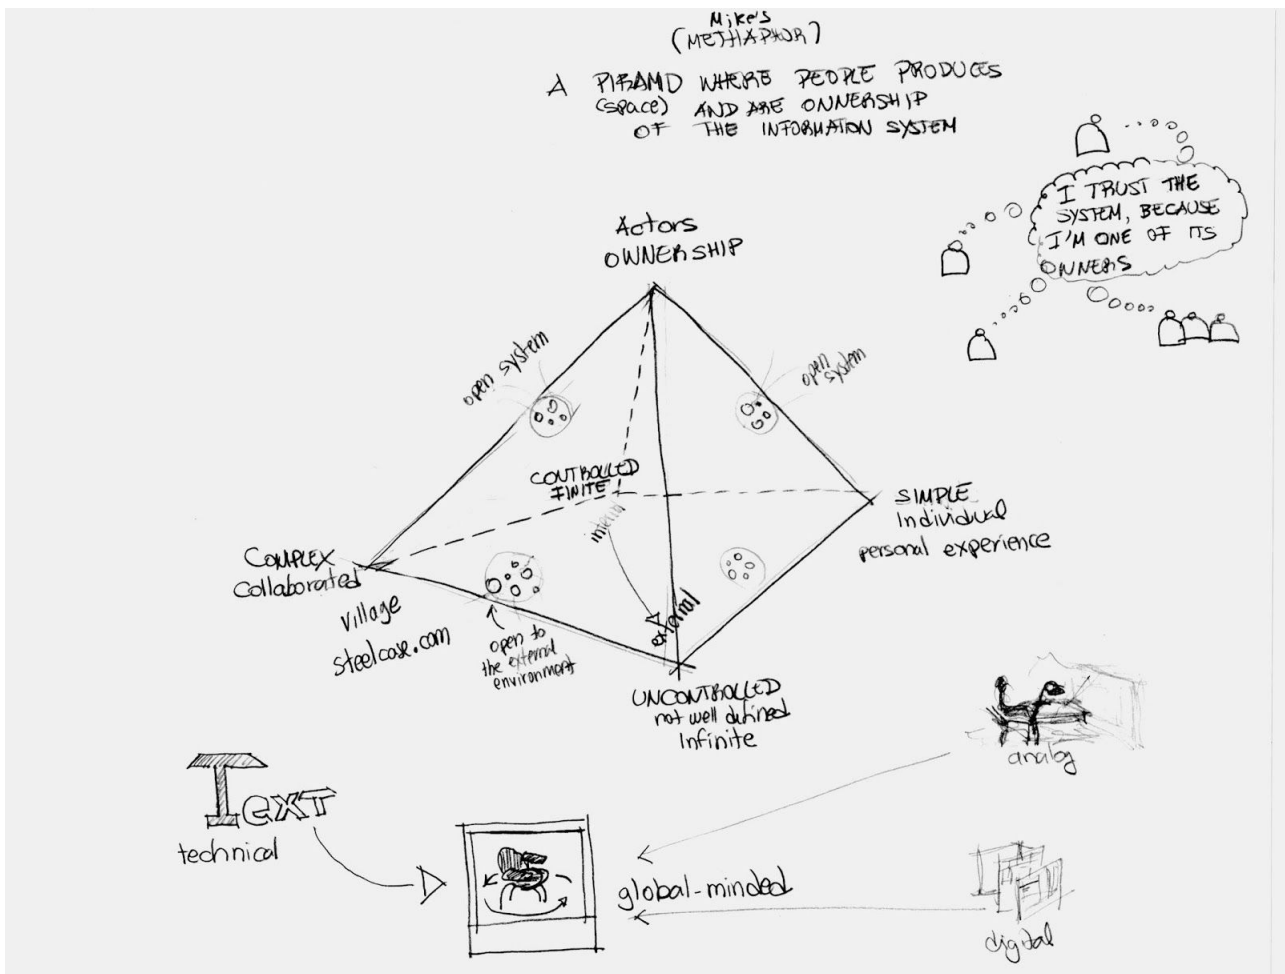 Mike's
(METHAPHOR)
A PIRAMID WHERE PEOPLE PRODUCES
(space) AND ARE ONNERSHIP
OF THE INFORMATION SYSTEM
I TRUST THE
SYSTEM, BECAUSE
I'M ONE OF ITS
OWNERS
Actors
OWNERSHIP
open system
open
system
CONTROLLED
FINITE
internal
SIMPLE
Individual
personal experience
COMPLEX
Collaborated
village
steelcase.com
open to
the external
environment
external
UNCONTROLLED
not well defined
Infinite
analog
Text
technical
global-minded
digital